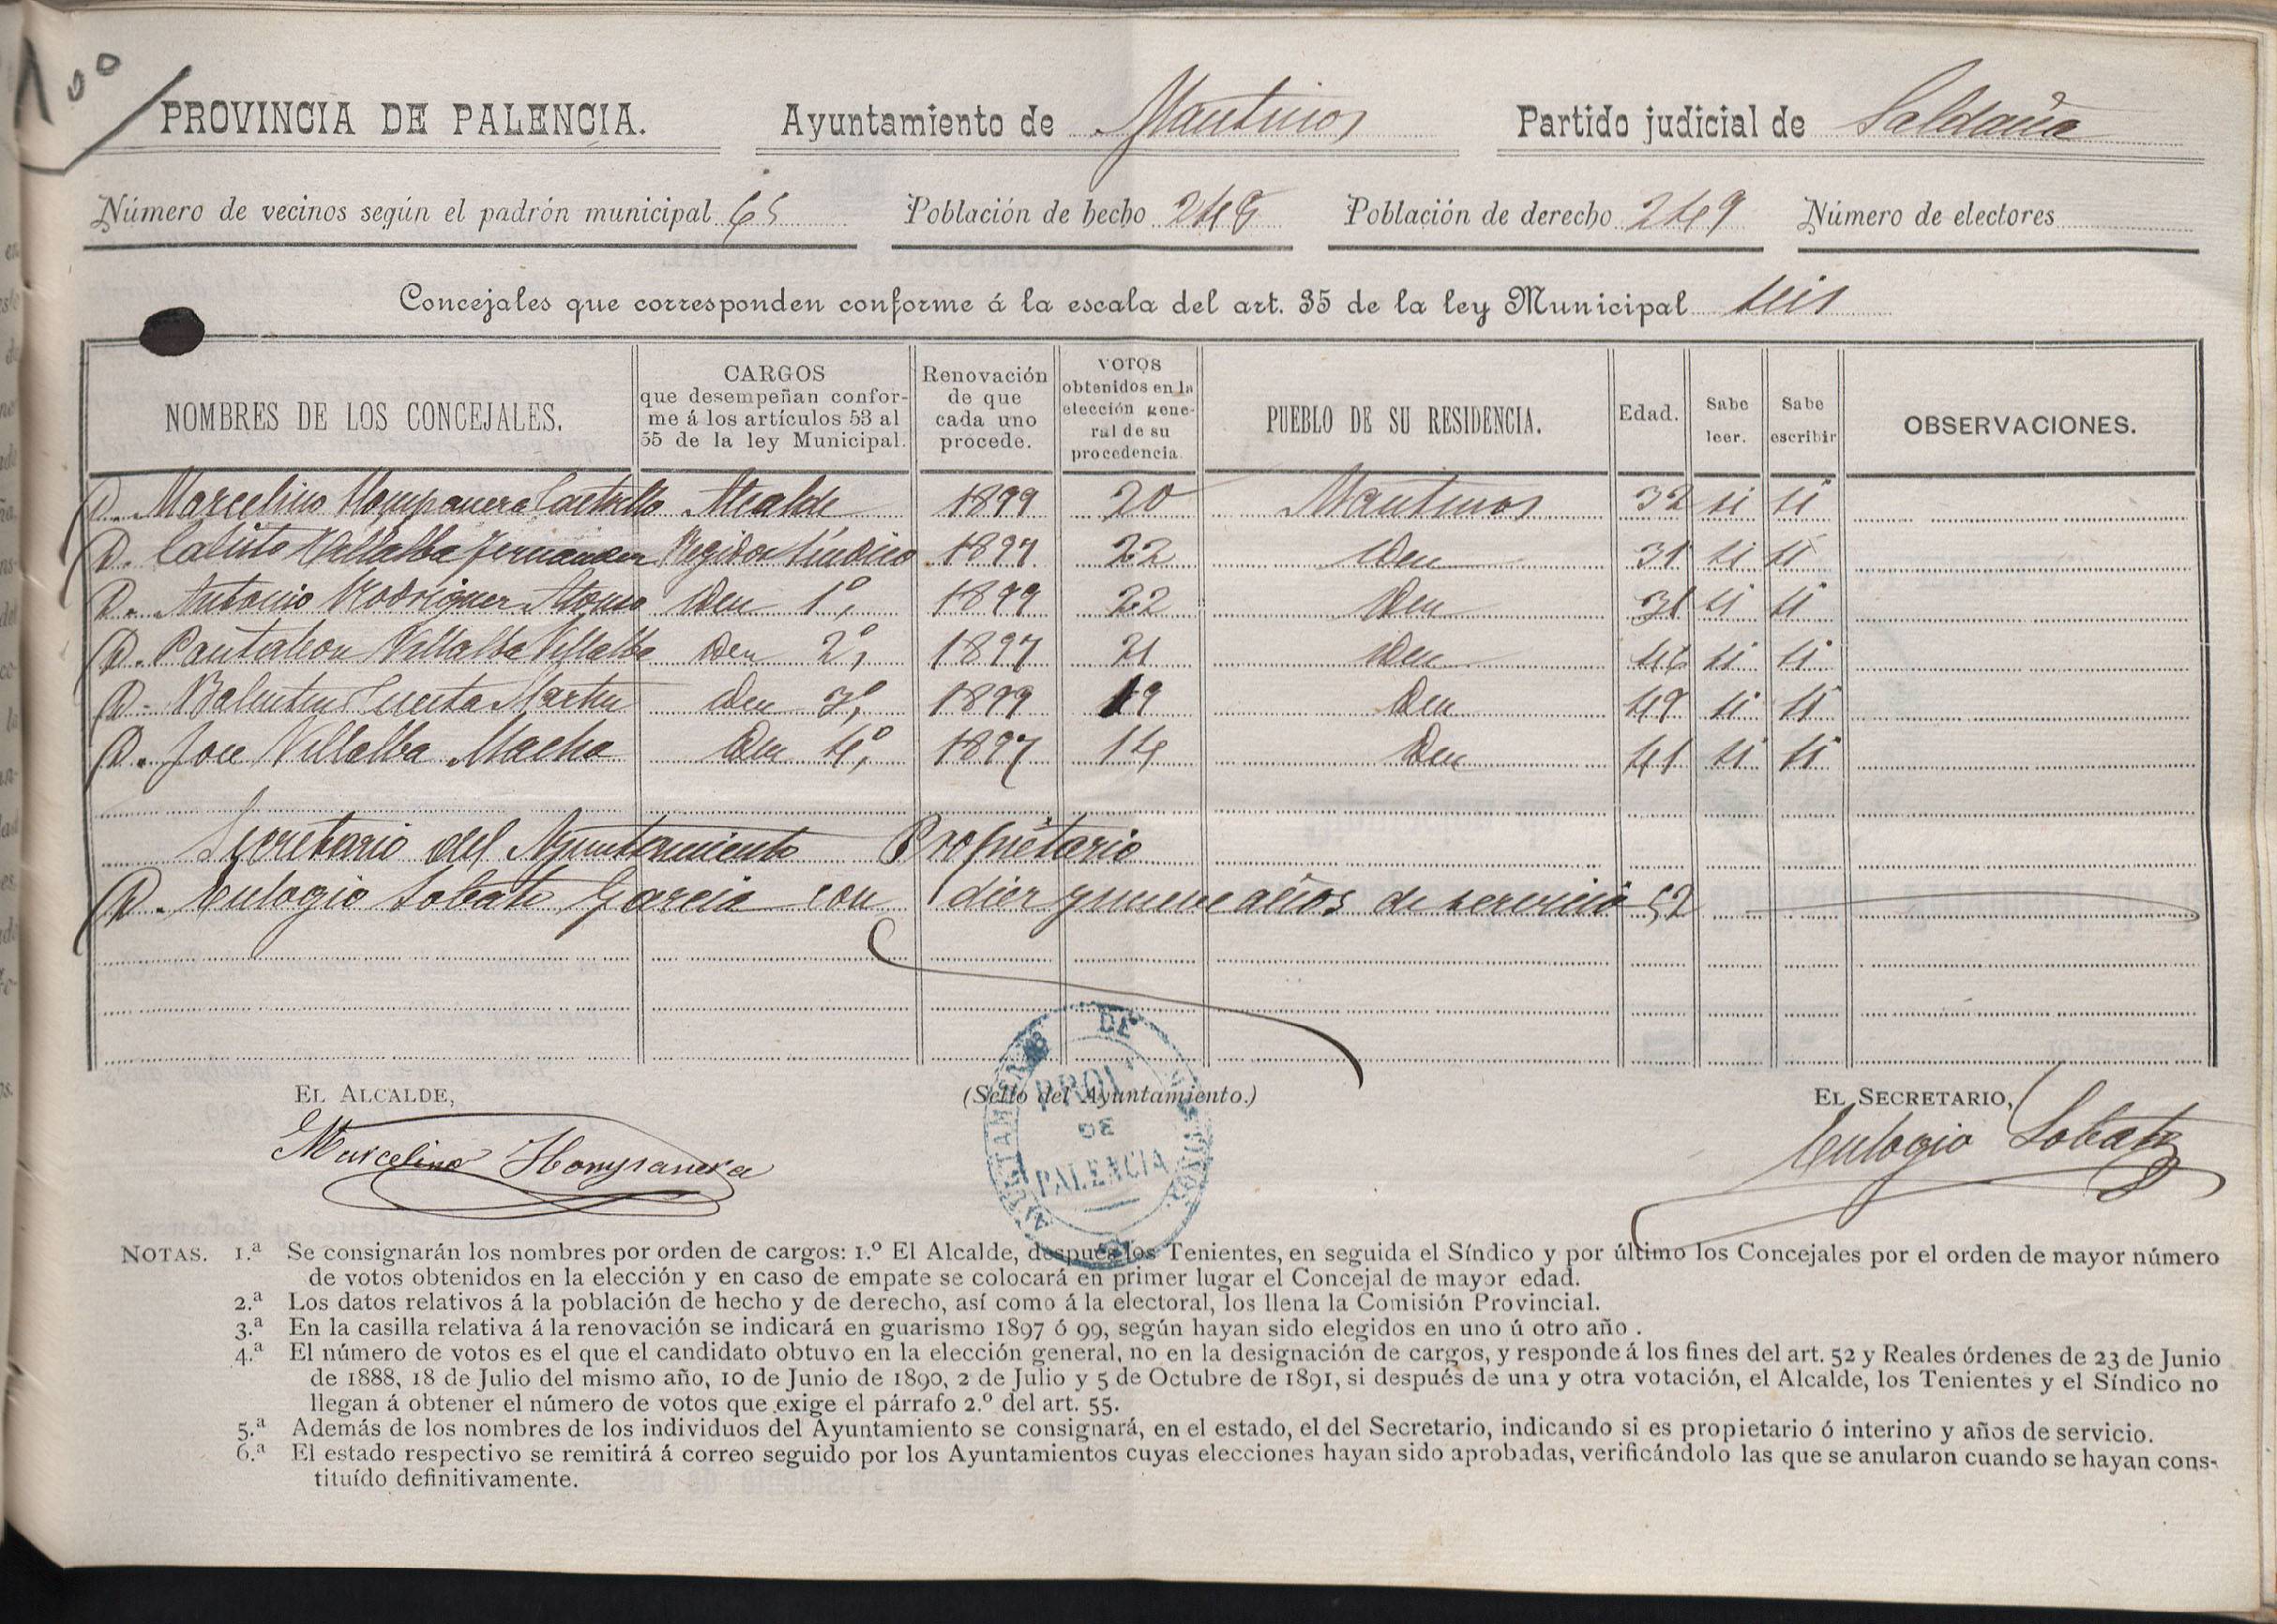 100
PROVINCIA DE PALENCIA. Ayuntamiento de Mantinos Partido judicial de Saldaña
Número de vecinos según el padrón municipal 65 Población de hecho 248 Población de derecho 249 Número de electores
Concejales que corresponden conforme á la escala del art. 35 de la ley Municipal seis
NOMBRES DE LOS CONCEJALES. CARGOS que desempeñan conforme á los artículos 53 al 55 de la ley Municipal. Renovación de que cada uno procede. VOTOS obtenidos en la elección general de su procedencia. PUEBLO DE SU RESIDENCIA. Edad. Sabe leer. Sabe escribir OBSERVACIONES.
D. Marcelino Hompanera Castrillo Alcalde 1899 20 Mantinos 32 si si
D. Calisto Villalba Fernandez Regidor Síndico 1897 22 Iden 31 si si
D. Antonio Rodriguez Alonso Iden 1º, 1899 22 Iden 31 si si
D. Pantaleon Villalba Villalba Iden 2º, 1897 21 Iden 46 si si
D. Balentin Cuesta Martin Iden 3º, 1899 19 Iden 49 si si
D. Jose Villalba Macho Iden 4º, 1897 14 Iden 41 si si
Secretario del Ayuntamiento Propietario
D. Eulogio Lobato Garcia con diez y nueve años de servicio 52
EL ALCALDE, (Sello del Ayuntamiento.) EL SECRETARIO,
Marcelino Hompanera Eulogio Lobato
AYUNTAMIENTO DE MANTINOS
PROV.
DE
PALENCIA
NOTAS. 1.ª Se consignarán los nombres por orden de cargos: 1.º El Alcalde, después los Tenientes, en seguida el Síndico y por último los Concejales por el orden de mayor número
de votos obtenidos en la elección y en caso de empate se colocará en primer lugar el Concejal de mayor edad.
2.ª Los datos relativos á la población de hecho y de derecho, así como á la electoral, los llena la Comisión Provincial.
3.ª En la casilla relativa á la renovación se indicará en guarismo 1897 ó 99, según hayan sido elegidos en uno ú otro año.
4.ª El número de votos es el que el candidato obtuvo en la elección general, no en la designación de cargos, y responde á los fines del art. 52 y Reales órdenes de 23 de Junio
de 1888, 18 de Julio del mismo año, 10 de Junio de 1890, 2 de Julio y 5 de Octubre de 1891, si después de una y otra votación, el Alcalde, los Tenientes y el Síndico no
llegan á obtener el número de votos que exige el párrafo 2.º del art. 55.
5.ª Además de los nombres de los individuos del Ayuntamiento se consignará, en el estado, el del Secretario, indicando si es propietario ó interino y años de servicio.
6.ª El estado respectivo se remitirá á correo seguido por los Ayuntamientos cuyas elecciones hayan sido aprobadas, verificándolo las que se anularon cuando se hayan cons-
tituído definitivamente.